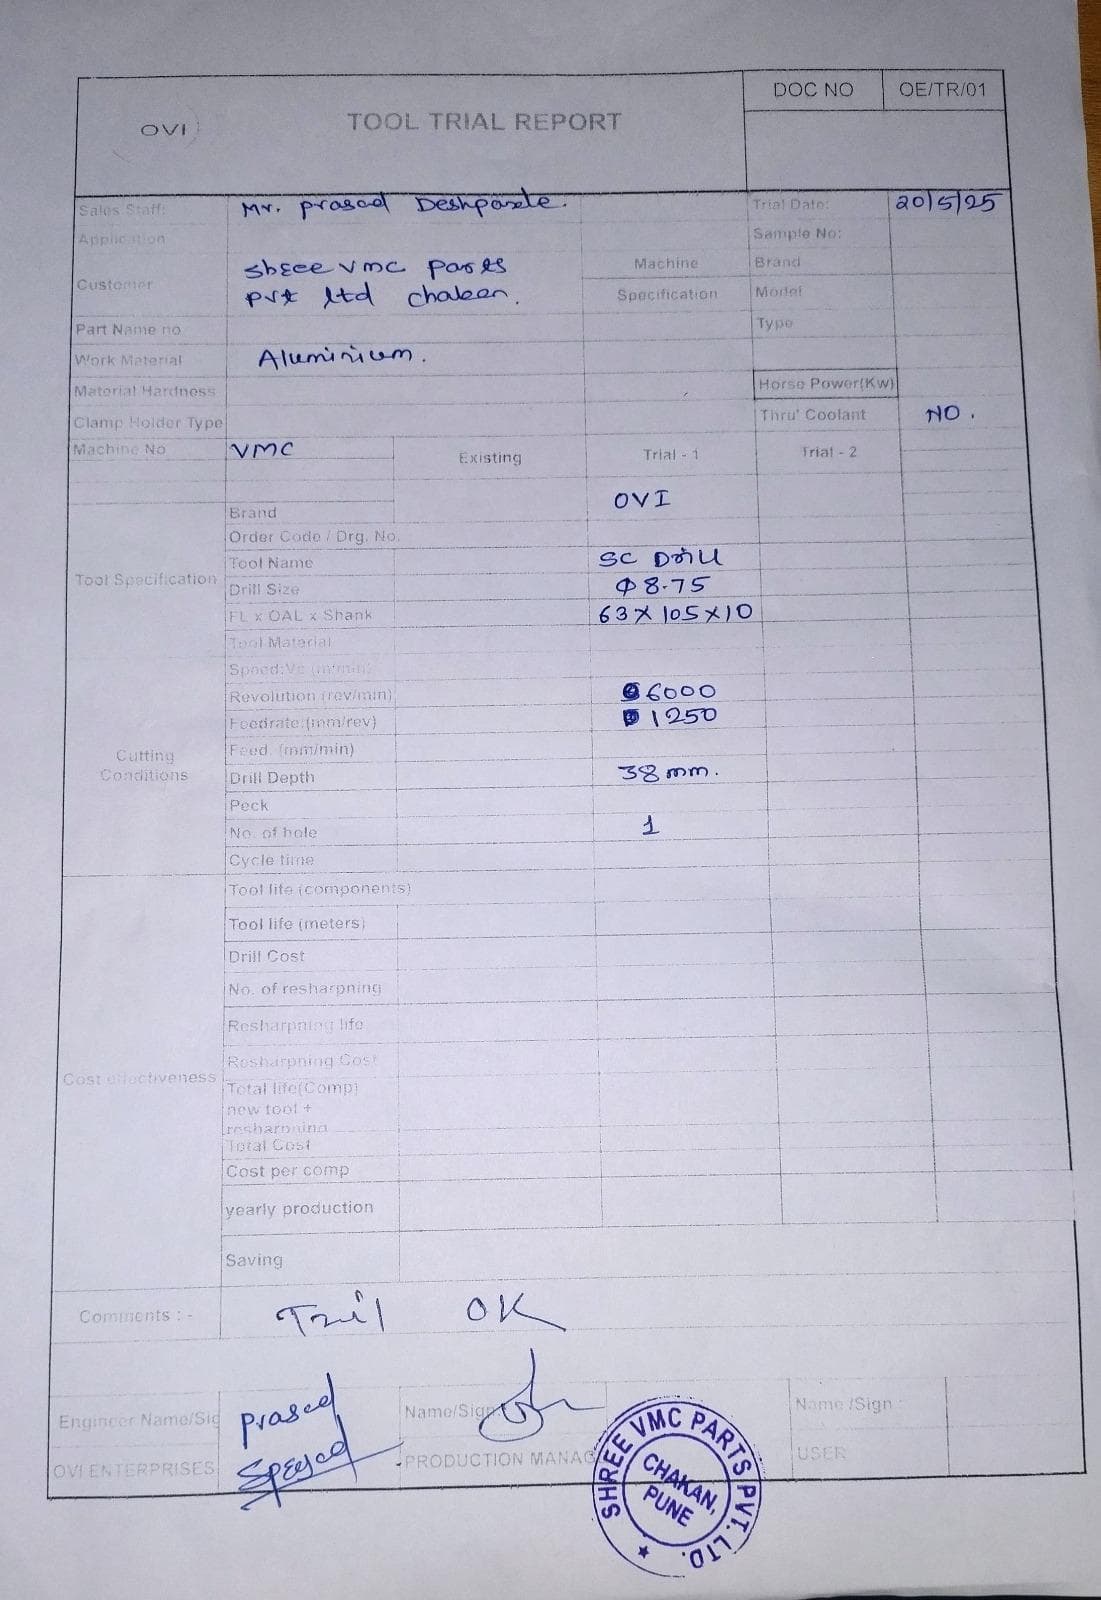 DOC NO OE/TR/01
OVI TOOL TRIAL REPORT
Sales Staff: Mr. Prasad Deshpande. Trial Date: 20/5/25
Application Sample No:
Customer Shree VMC Parts Machine Brand
Pvt Ltd Chakan. Specification Model
Part Name no Type
Work Material Aluminium.
Material Hardness Horse Power(Kw)
Clamp Holder Type Thru' Coolant NO.
Machine No VMC Existing Trial - 1 Trial - 2
Brand OVI
Order Code / Drg. No.
Tool Name SC Drill
Tool Specification
Drill Size Φ 8.75
FL x OAL x Shank 63 X 105 X 10
Tool Material
Speed:Vc (m/min)
Revolution (rev/min) 6000
Feedrate:(mm/rev) 1250
Feed (mm/min)
Cutting Conditions
Drill Depth 38 mm.
Peck
No. of hole 1
Cycle time
Tool life (components)
Tool life (meters)
Drill Cost
No. of resharpning
Resharpning life
Resharpning Cost
Cost effectiveness
Total life(Comp)
new tool +
resharpning
Total Cost
Cost per comp
yearly production
Saving
Comments : - Tril OK
Engineer Name/Sig Prasad Name/Sign Name /Sign :
OVI ENTERPRISES PRODUCTION MANAG USER
SHREE VMC PARTS PVT. LTD.
CHAKAN,
PUNE